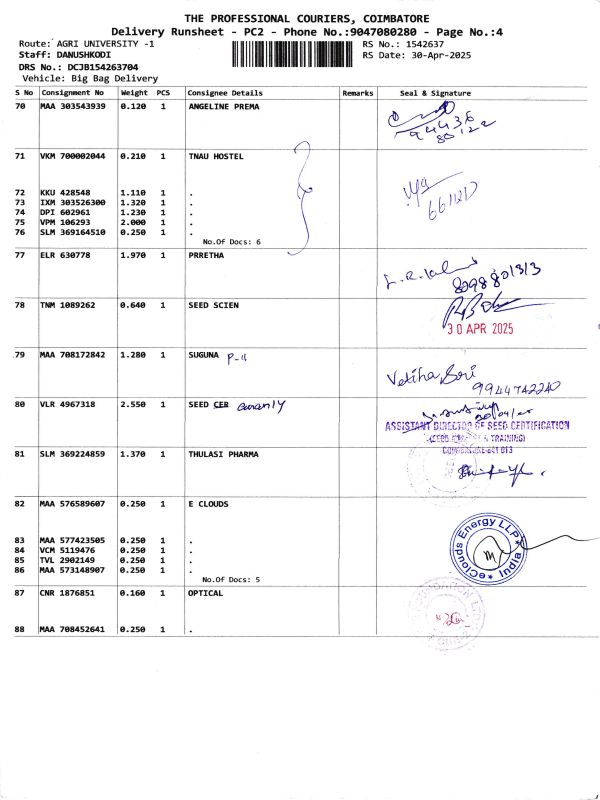 THE PROFESSIONAL COURIERS, COIMBATORE
Delivery Runsheet - PC2 - Phone No.:9047080280 - Page No.:4
Route: AGRI UNIVERSITY -1 RS No.: 1542637
Staff: DANUSHKODI RS Date: 30-Apr-2025
DRS No.: DCJB154263704
Vehicle: Big Bag Delivery
S No Consignment No Weight PCS Consignee Details Remarks Seal & Signature
70 MAA 303543939 0.120 1 ANGELINE PREMA
94436
80122
71 VKM 700002044 0.210 1 TNAU HOSTEL
72 KKU 428548 1.110 1 .
73 IXM 303526300 1.320 1 .
74 DPI 602961 1.230 1 .
75 VPM 106293 2.000 1 .
76 SLM 369164510 0.250 1 .
No.Of Docs: 6
77 ELR 630778 1.970 1 PRRETHA
8098801313
78 TNM 1089262 0.640 1 SEED SCIEN
30 APR 2025
79 MAA 708172842 1.280 1 SUGUNA P-11
9944742240
80 VLR 4967318 2.550 1 SEED CER
ASSISTANT DIRECTOR OF SEED CERTIFICATION
81 SLM 369224859 1.370 1 THULASI PHARMA
82 MAA 576589607 0.250 1 E CLOUDS
83 MAA 577423505 0.250 1 .
84 VCM 5119476 0.250 1 .
85 TVL 2902149 0.250 1 .
86 MAA 573148907 0.250 1 .
No.Of Docs: 5
eClouds Energy LLP
India
87 CNR 1876851 0.160 1 OPTICAL
88 MAA 708452641 0.250 1 .